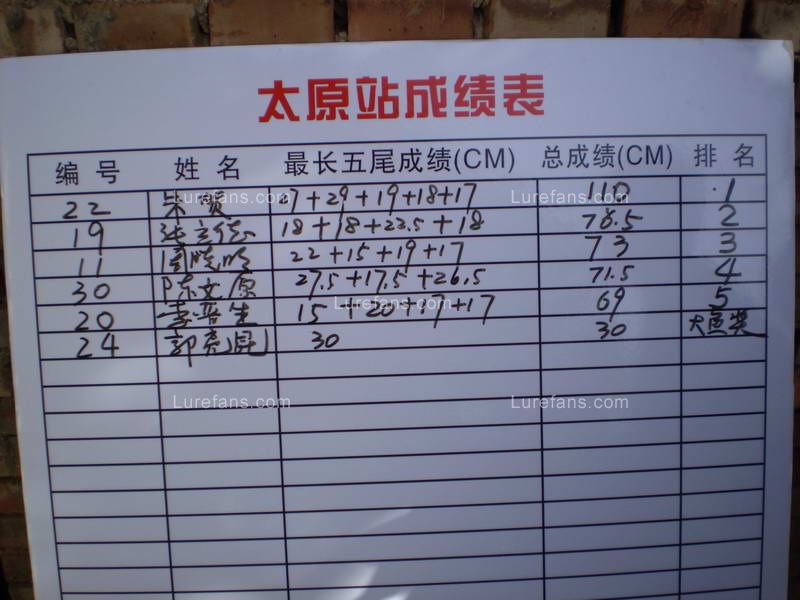 太原站成绩表
编号 姓名 最长五尾成绩(CM) 总成绩(CM) 排名
22 朱 27+29+19+18+17 110 1
19 张 18+18+22.5+18 76.5 2
11 周晓明 22+15+19+17 73 3
30 陈文原 27.5+17.5+26.5 71.5 4
20 李晋生 15+20+17+17 69 5
24 郭亮昆 30 30 大鱼奖
Lurefans.com Lurefans.com
Lurefans.com
Lurefans.com Lurefans.com